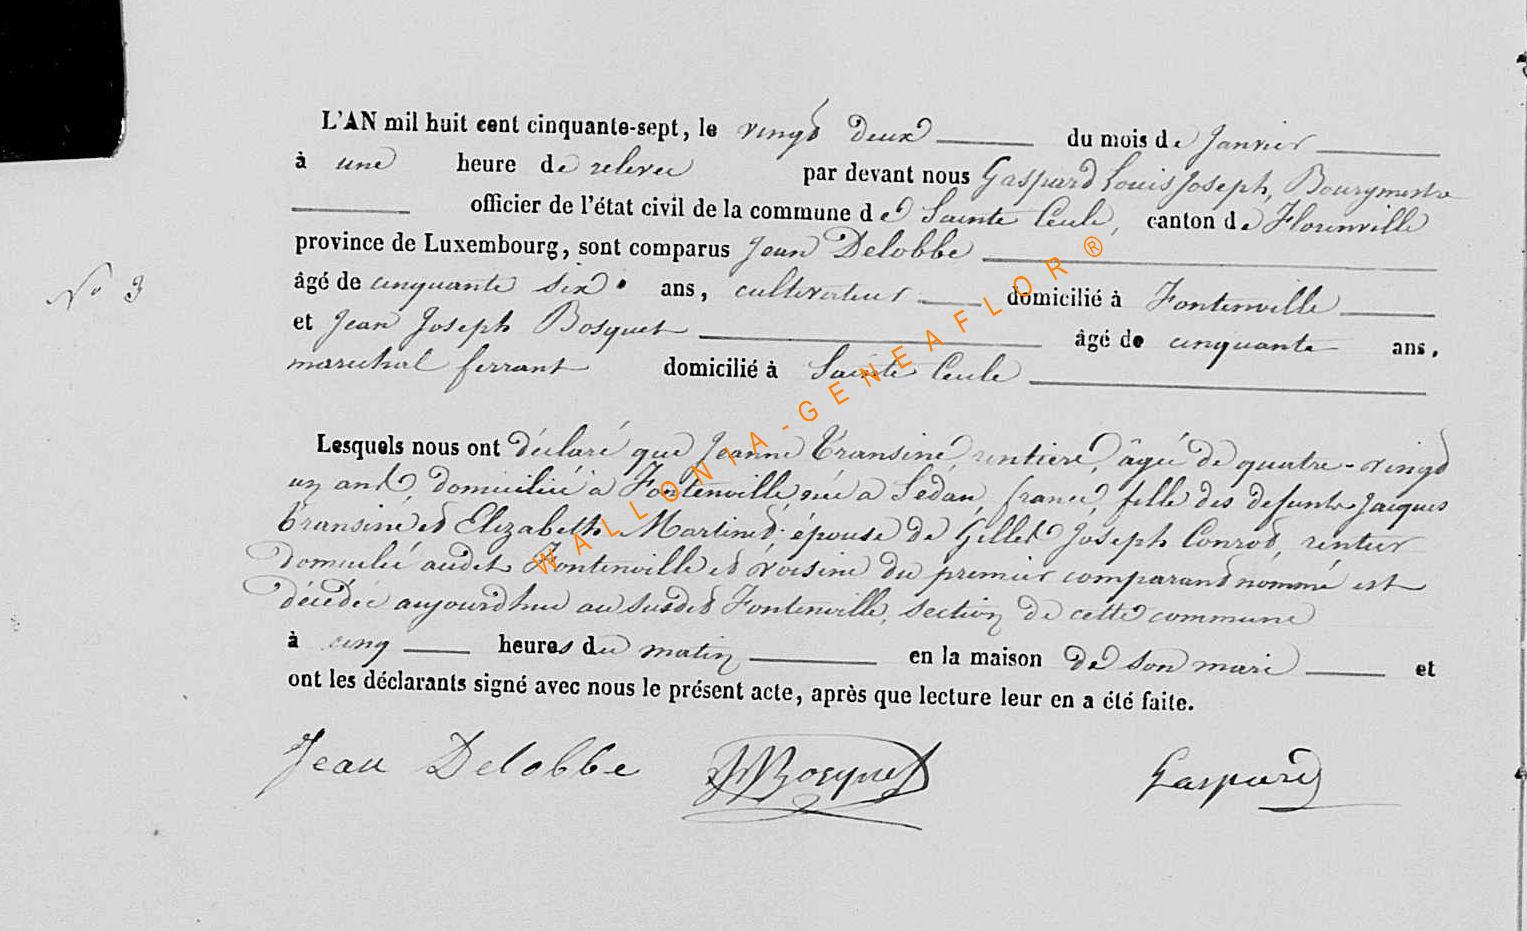 L'AN mil huit cent cinquante-sept, le vingt deux du mois de Janvier
à une heure de relevée par devant nous Gaspard Louis Joseph, Bourgmestre
officier de l'état civil de la commune de Sainte Cecile, canton de Florenville
province de Luxembourg, sont comparus Jean Delobbe
âgé de cinquante six ans, cultivateur domicilié à Fontenoille
N° 3
et Jean Joseph Bosquet âgé de cinquante ans,
marechal ferrant domicilié à Sainte Cecile
Lesquels nous ont déclaré que Jeanne Transine, rentiere, âgée de quatre-vingt
un ans, domiciliée à Fontenoille, née a Sedan, france, fille des defunts Jacques
Transine et Elizabeth Martinet épouse de Gillet Joseph Conrot, rentier
domicilié audit Fontenoille et voisine du premier comparant nommé est
décédée aujourdhui au susdit Fontenoille, section de cette commune
à cinq heures du matin en la maison de son mari et
ont les déclarants signé avec nous le présent acte, après que lecture leur en a été faite.
Jean Delobbe JJBosquet Gaspard
WALLONIA-GENEAFLOR®